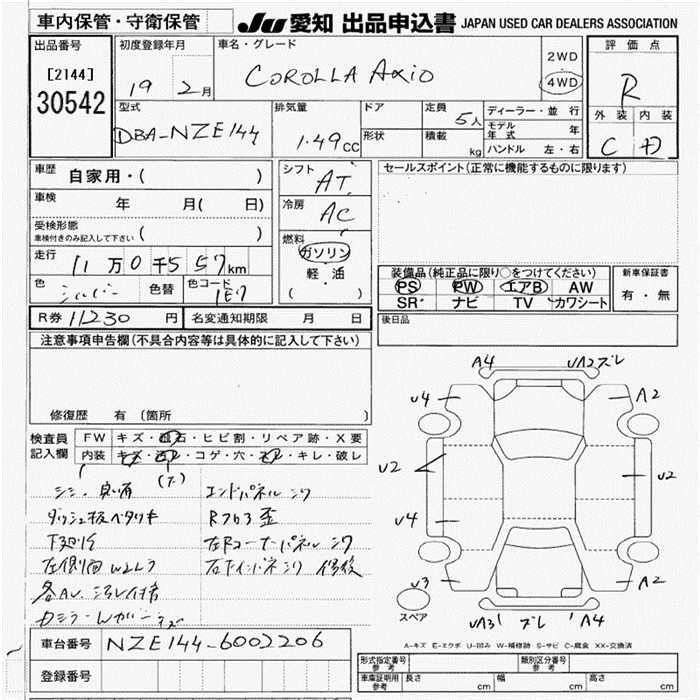 車内保管・守衛保管 JU 愛知 出品申込書 JAPAN USED CAR DEALERS ASSOCIATION
出品番号 初度登録年月 車名・グレード 評価点
[2144]
30542
19 2月 COROLLA Axio 2WD 4WD R
型式 排気量 ドア 定員 ディーラー・並行 外装 内装
DBA-NZE144 1.49cc 5人 モデル年式 年 C D
形状 積載 kg ハンドル 左・右
車歴 自家用・( )
車検 年 月( 日)
受検形態
車検付きのみ記入して下さい ( )
走行 11万0千557km
色 シルバー 色替 色コード 1E7
シフト AT
冷房 AC
燃料
ガソリン
軽・油
( )
セールスポイント(正常に機能するものに限ります)
装備品(純正品に限り○をつけてください) 新車保証書
PS PW エアB AW 有・無
SR ナビ TV カワシート
後日品
R券 11230 円 名変通知期限 月 日
注意事項申告欄(不具合内容等は具体的に記入して下さい)
修復歴 有 (箇所
検査員 FW キズ・飛石・ヒビ割・リペア跡・X要
記入欄 内装 キズ・汚レ・コゲ・穴・スレ・キレ・破レ
エンドパネル
R フロア 歪
下廻り
A4 UA2 ズレ
U4 A2
U2 U2
U4
U3 A2
スペア UA3 ズレ A4
車台番号 NZE144-6002206
登録番号
A-キズ E-エクボ U-凹み W-補修跡 S-サビ C-腐食 XX-交換済
形式指定番号 参考 類別区分番号 参考
車庫証明用 参考 長さ cm 幅 cm 高さ cm